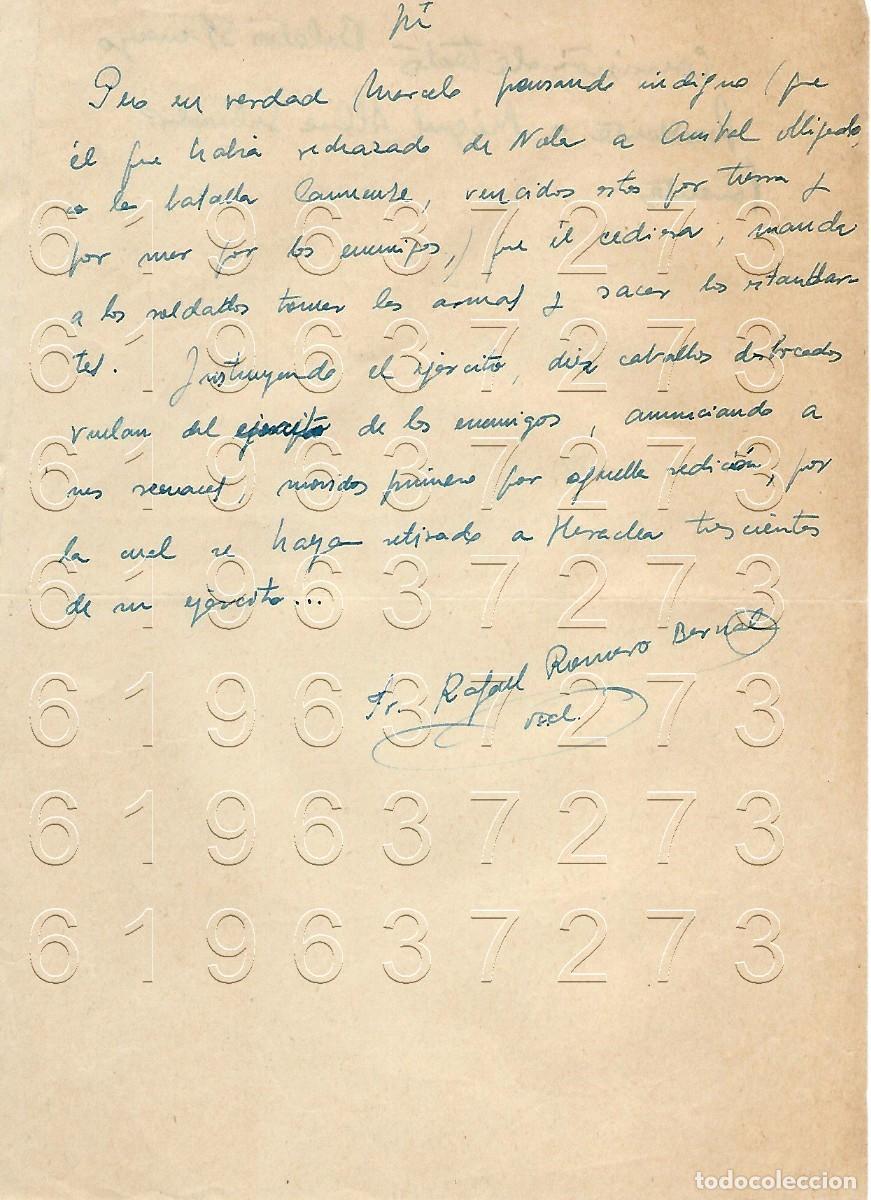 Pero en verdad Marcelo pensando indigno (que
él que había rechazado de Nola a Aníbal
a la batalla Cannense, vencidos estos por tierra y
por mar por los enemigos,) que él cediera, manda
a los soldados tomar las armas y sacar los estandar-
tes. Instruyendo el ejército, diez caballos
vuelan del ejercito de los enemigos, anunciando a
movidos primero por aquella sedición, por
la cual se hayan retirado a Heraclea trescientos
de su ejército...
Fr. Rafael Romero Bernal
619637273
619637273
619637273
619637273
619637273
619637273
619637273
todocoleccion